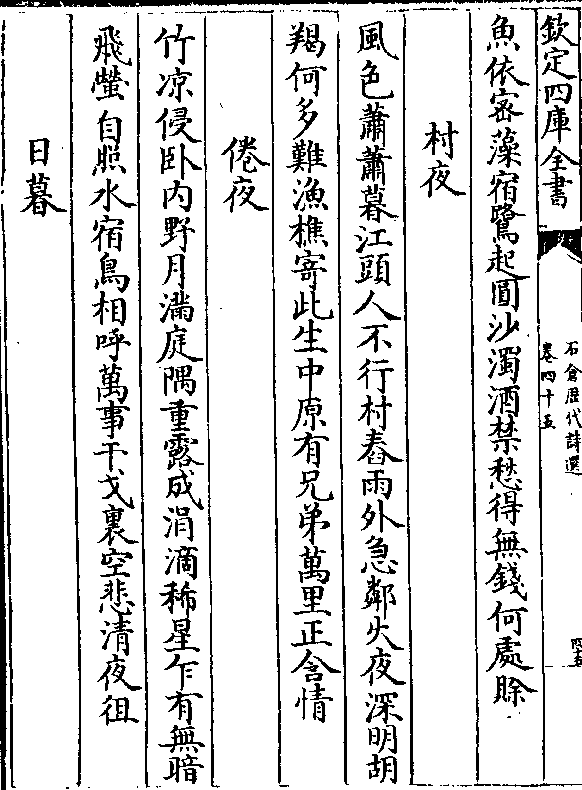 欽定四庫全書
石倉歷代詩選
卷四十五
魚依密藻宿鷺起圓沙濁酒禁愁得無錢何處賒
村夜
風色蕭蕭暮江頭人不行村舂雨外急鄰火夜深明胡
羯何多難漁樵寄此生中原有兄弟萬里正含情
倦夜
竹凉侵卧内野月滿庭隅重露成涓滴稀星乍有無暗
飛螢自照水宿鳥相呼萬事干戈裏空悲清夜徂
日暮